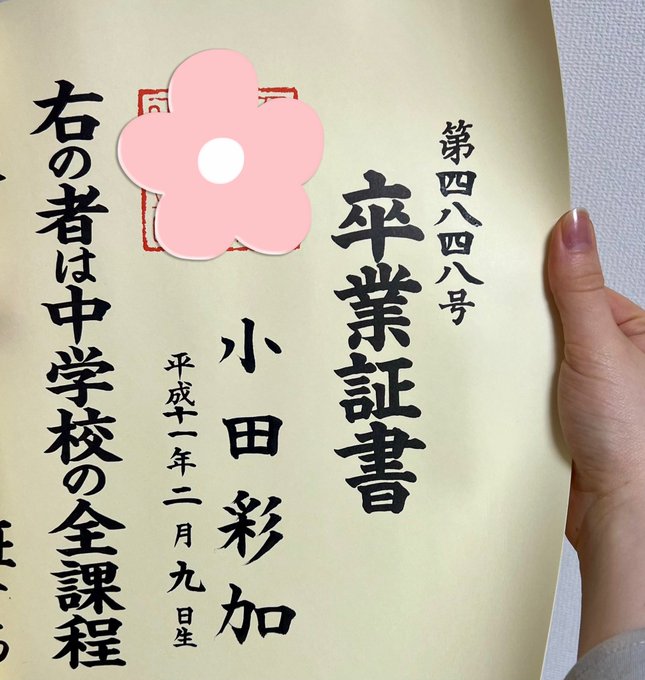 第四八四八号
卒業証書
小田彩加
平成十一年二月九日生
右の者は中学校の全課程